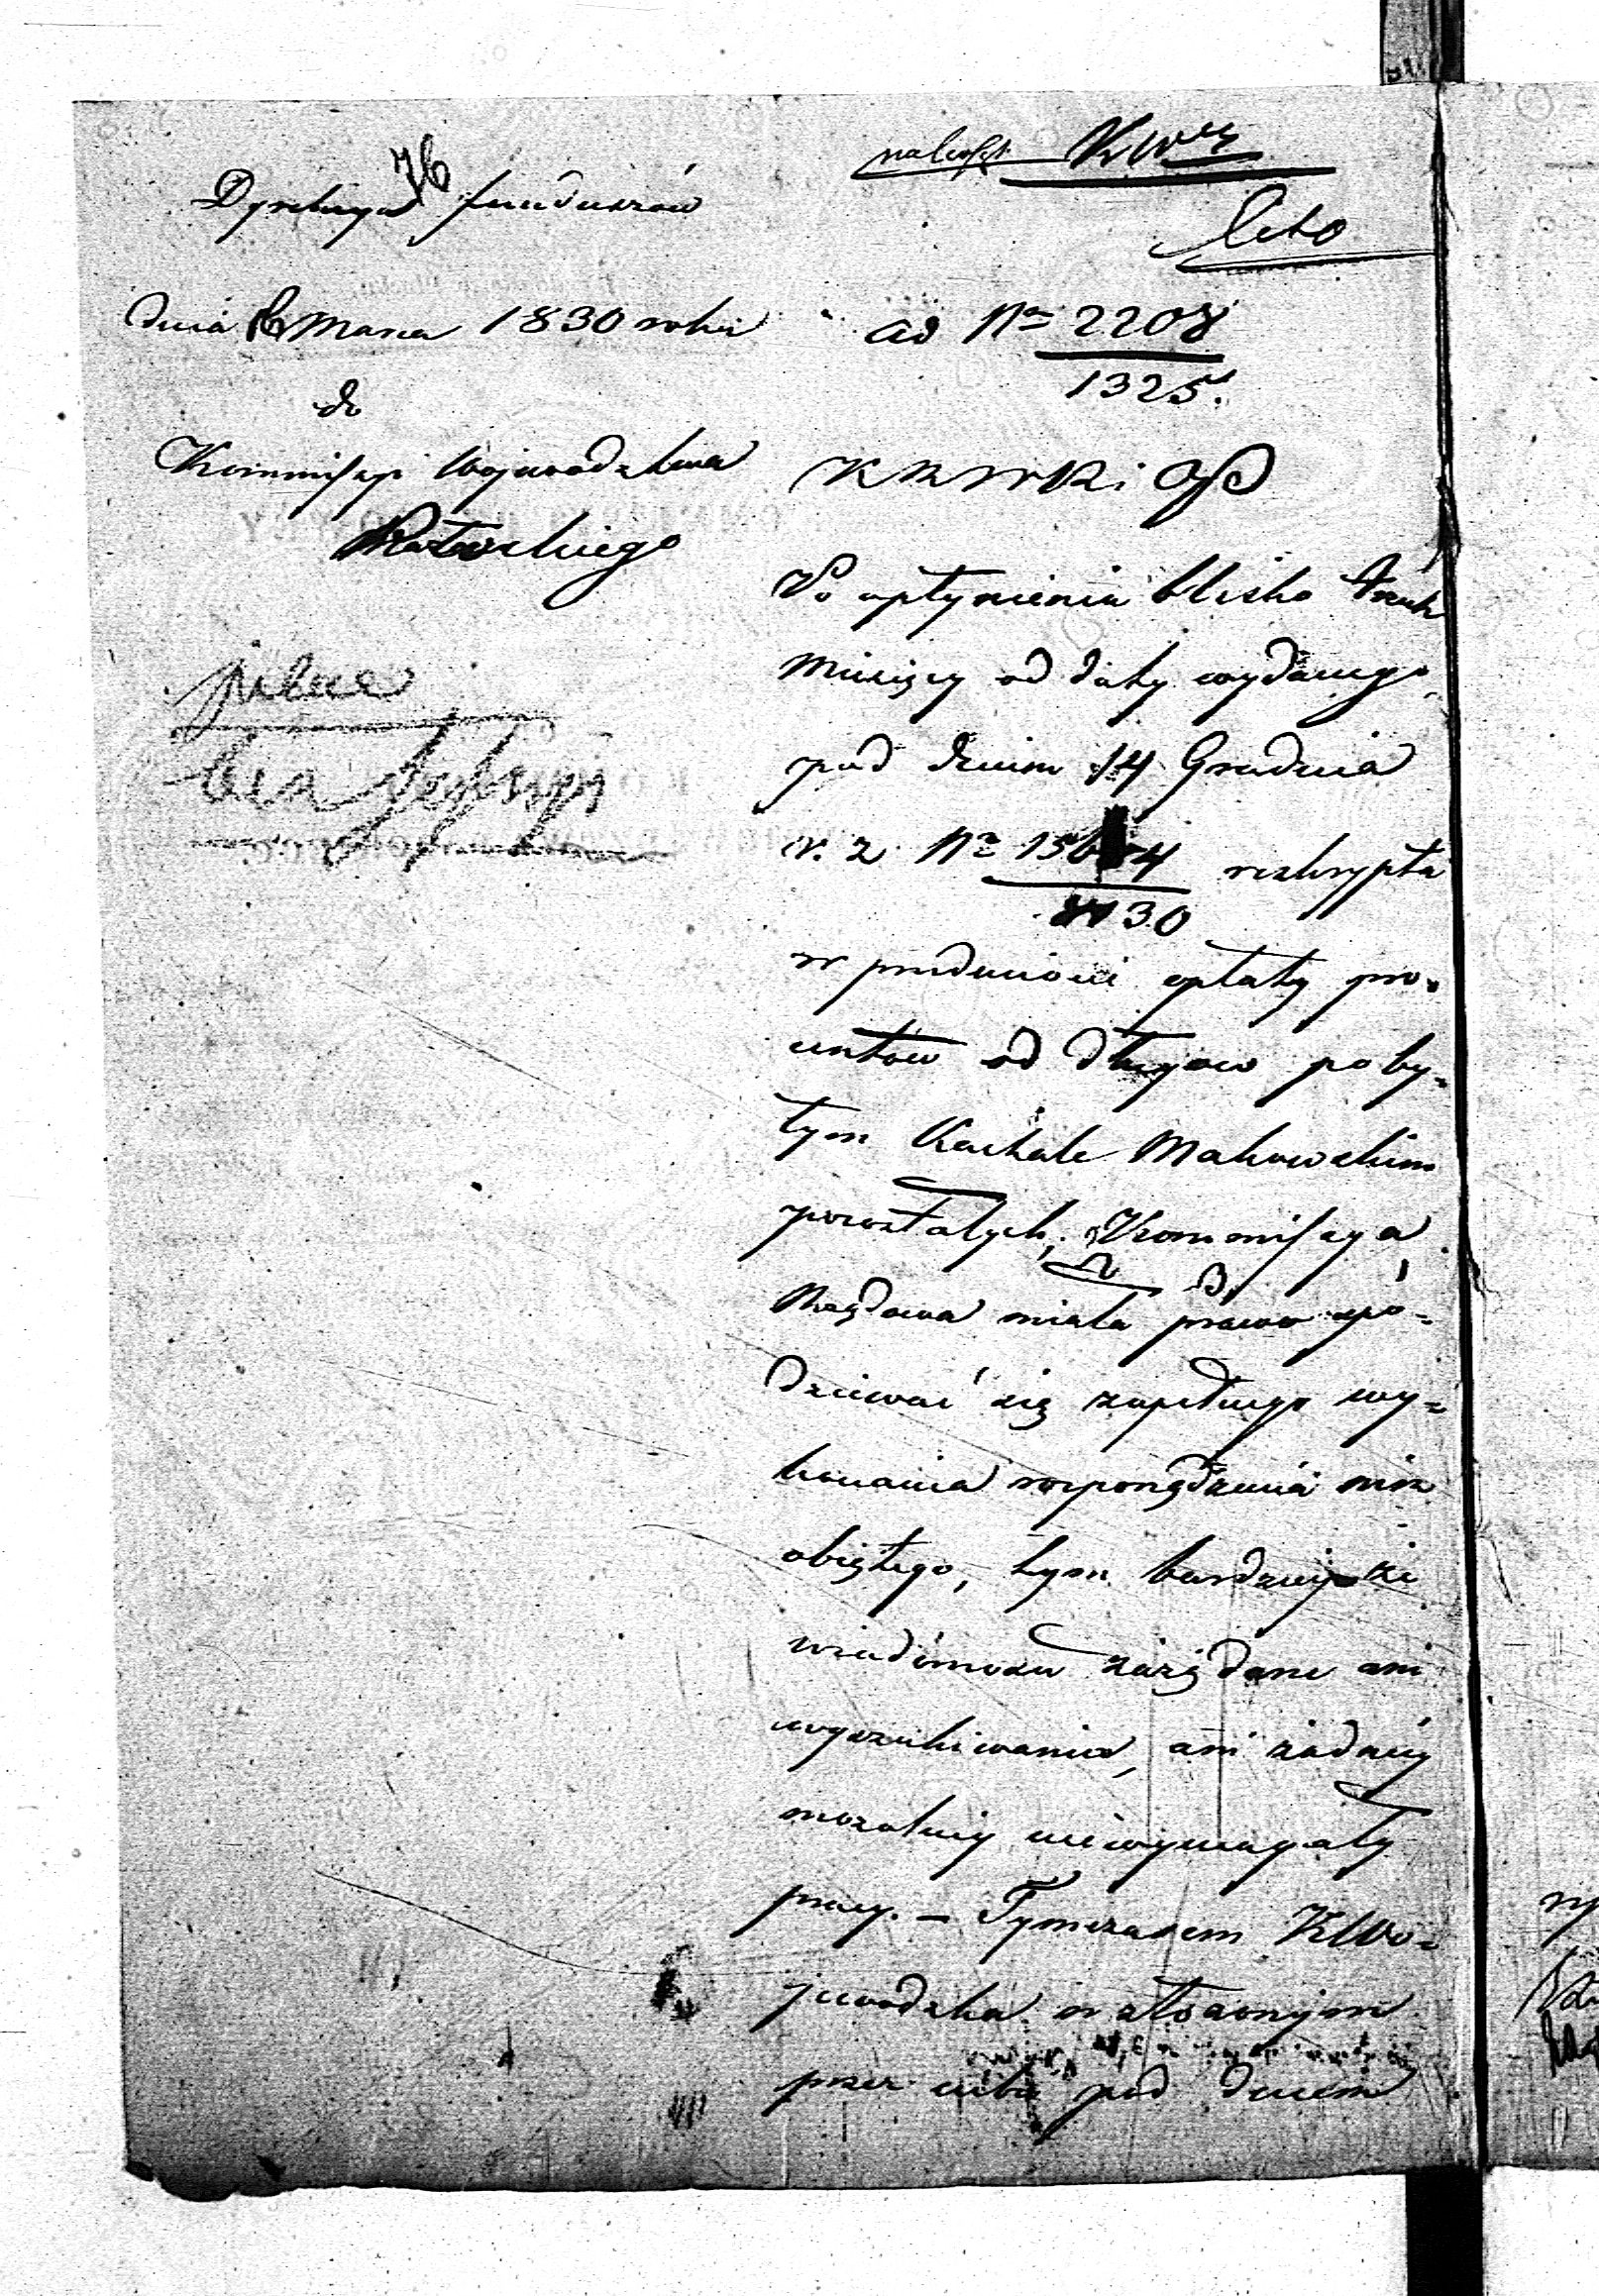 76
Dyrekcya funduszów
dnia 16 Marca 1830 roku
do
Kommissyi Województwa
Płockiego
pilne
ad Nro 2208
1325.
K R S W R i OP
Po upłynieniu blisko trzech
Miesięcy od daty wydanego
pod dniem 14 Grudnia
r. z. Nro
reskryptu
w przedmiocie opłaty pro-
centów od długów po by-
tym Kachale Makowskim
pozostałych, Kommissya
Rządowa miała prawo spo-
dziewać się zupełnego wy-
konania rozporządzenia nim
obiętego, tym bardziey że
wiadomości zażądane ani
wyszukiwania, ani żadney
mozolney niewymagały
pracy. – Tymczasem KWo-
jewodzka w złożonym
przez siebie pod dniem